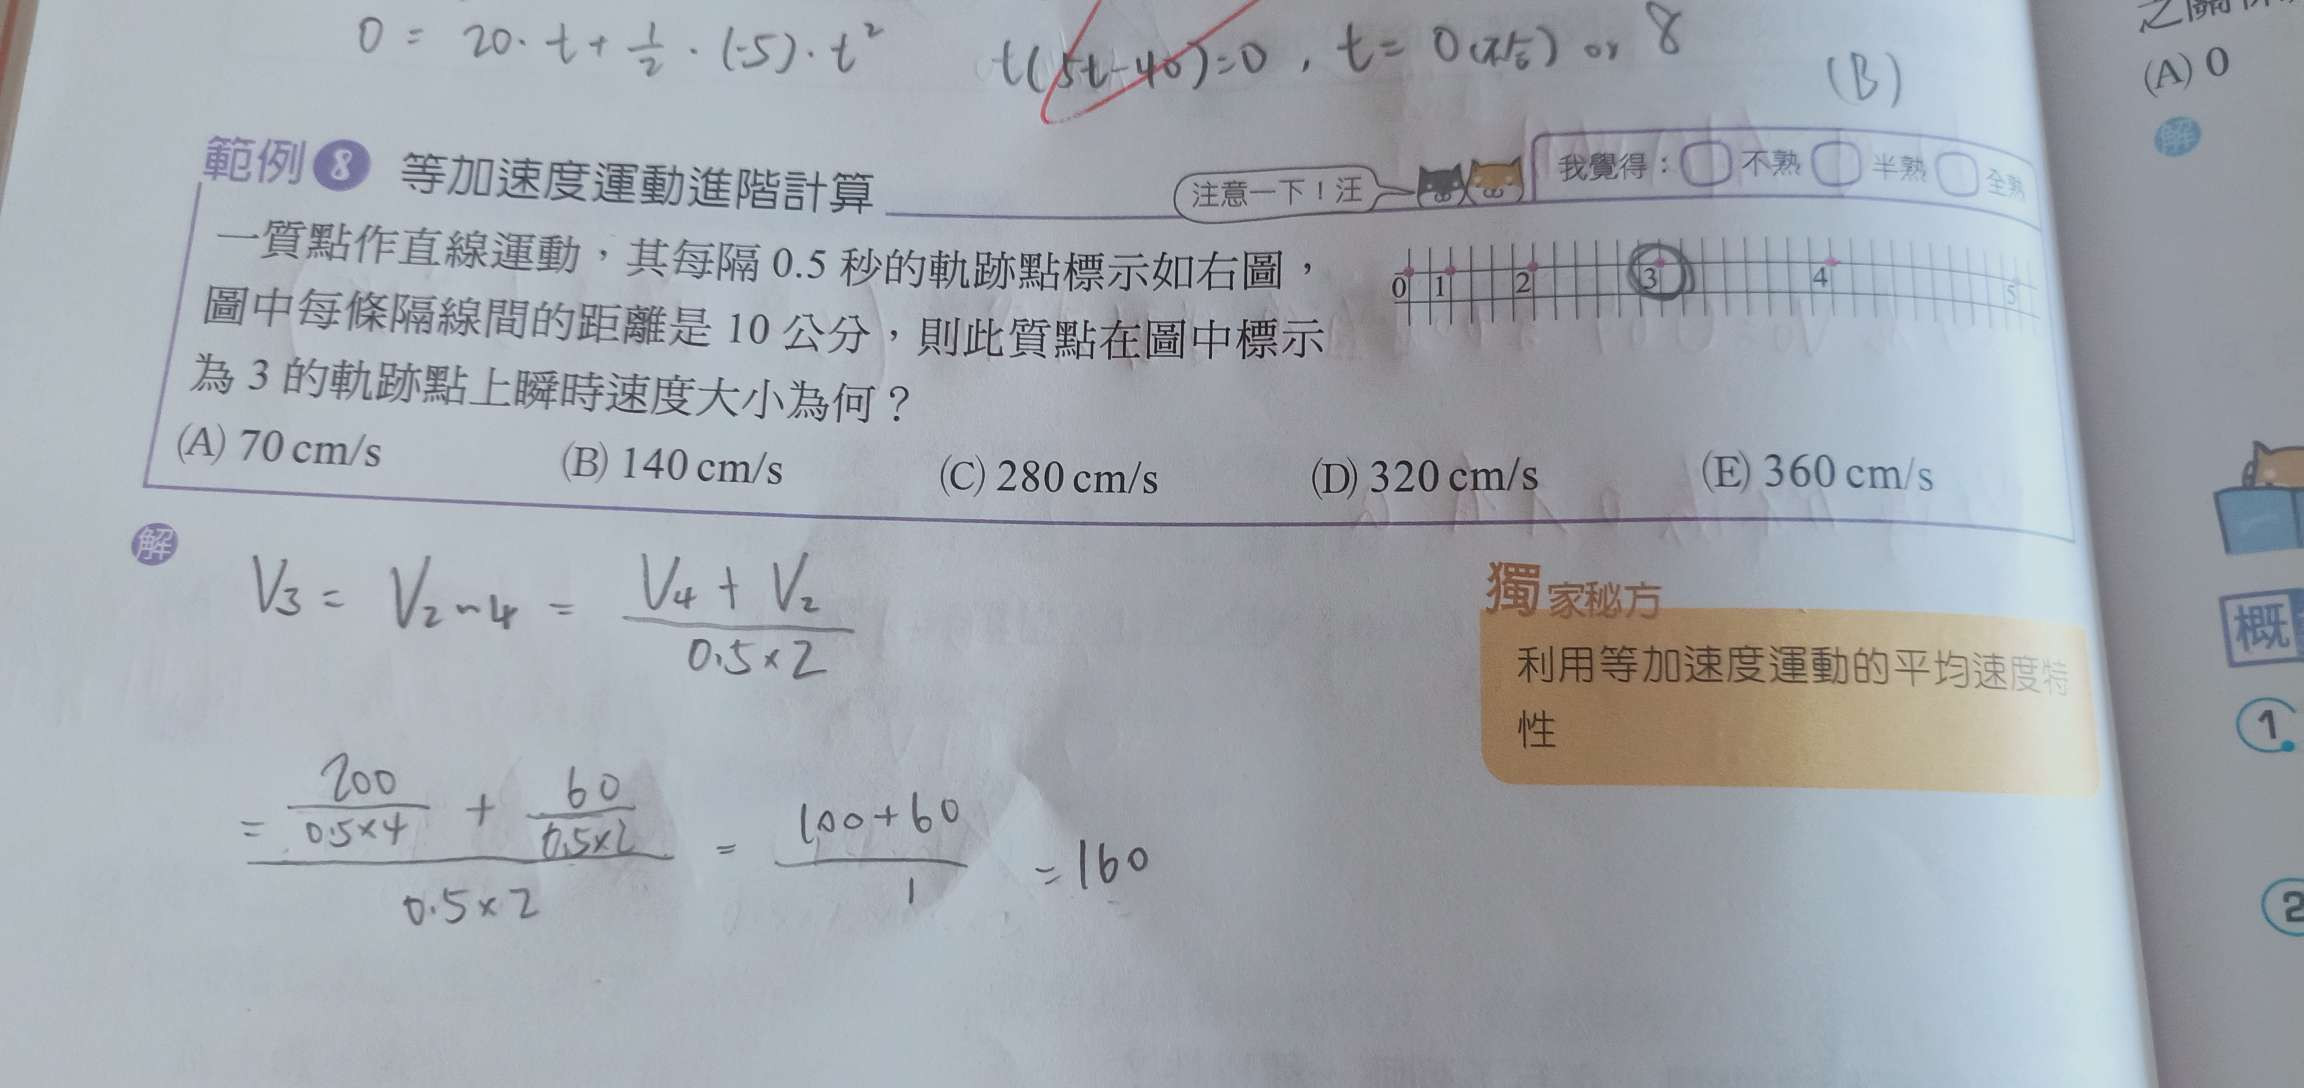 0 = 20·t + 1/2·(-5)·t²  t(5t-40)=0, t= 0(不合) or 8  (B)
範例 8 等加速度運動進階計算
注意一下!汪
我覺得: 不熟 半熟 全熟
一質點作直線運動,其每隔 0.5 秒的軌跡點標示如右圖,
圖中每條隔線間的距離是 10 公分,則此質點在圖中標示
為 3 的軌跡點上瞬時速度大小為何?
0 1 2 3 4 5
(A) 70 cm/s (B) 140 cm/s (C) 280 cm/s (D) 320 cm/s (E) 360 cm/s
解
V₃ = V₂~₄ = (V₄ + V₂)/(0.5×2)
= (200/(0.5×4) + 60/(0.5×2))/(0.5×2) = (100+60)/1 = 160
獨家秘方
利用等加速度運動的平均速度特
性
(A) 0
解
概
1
2